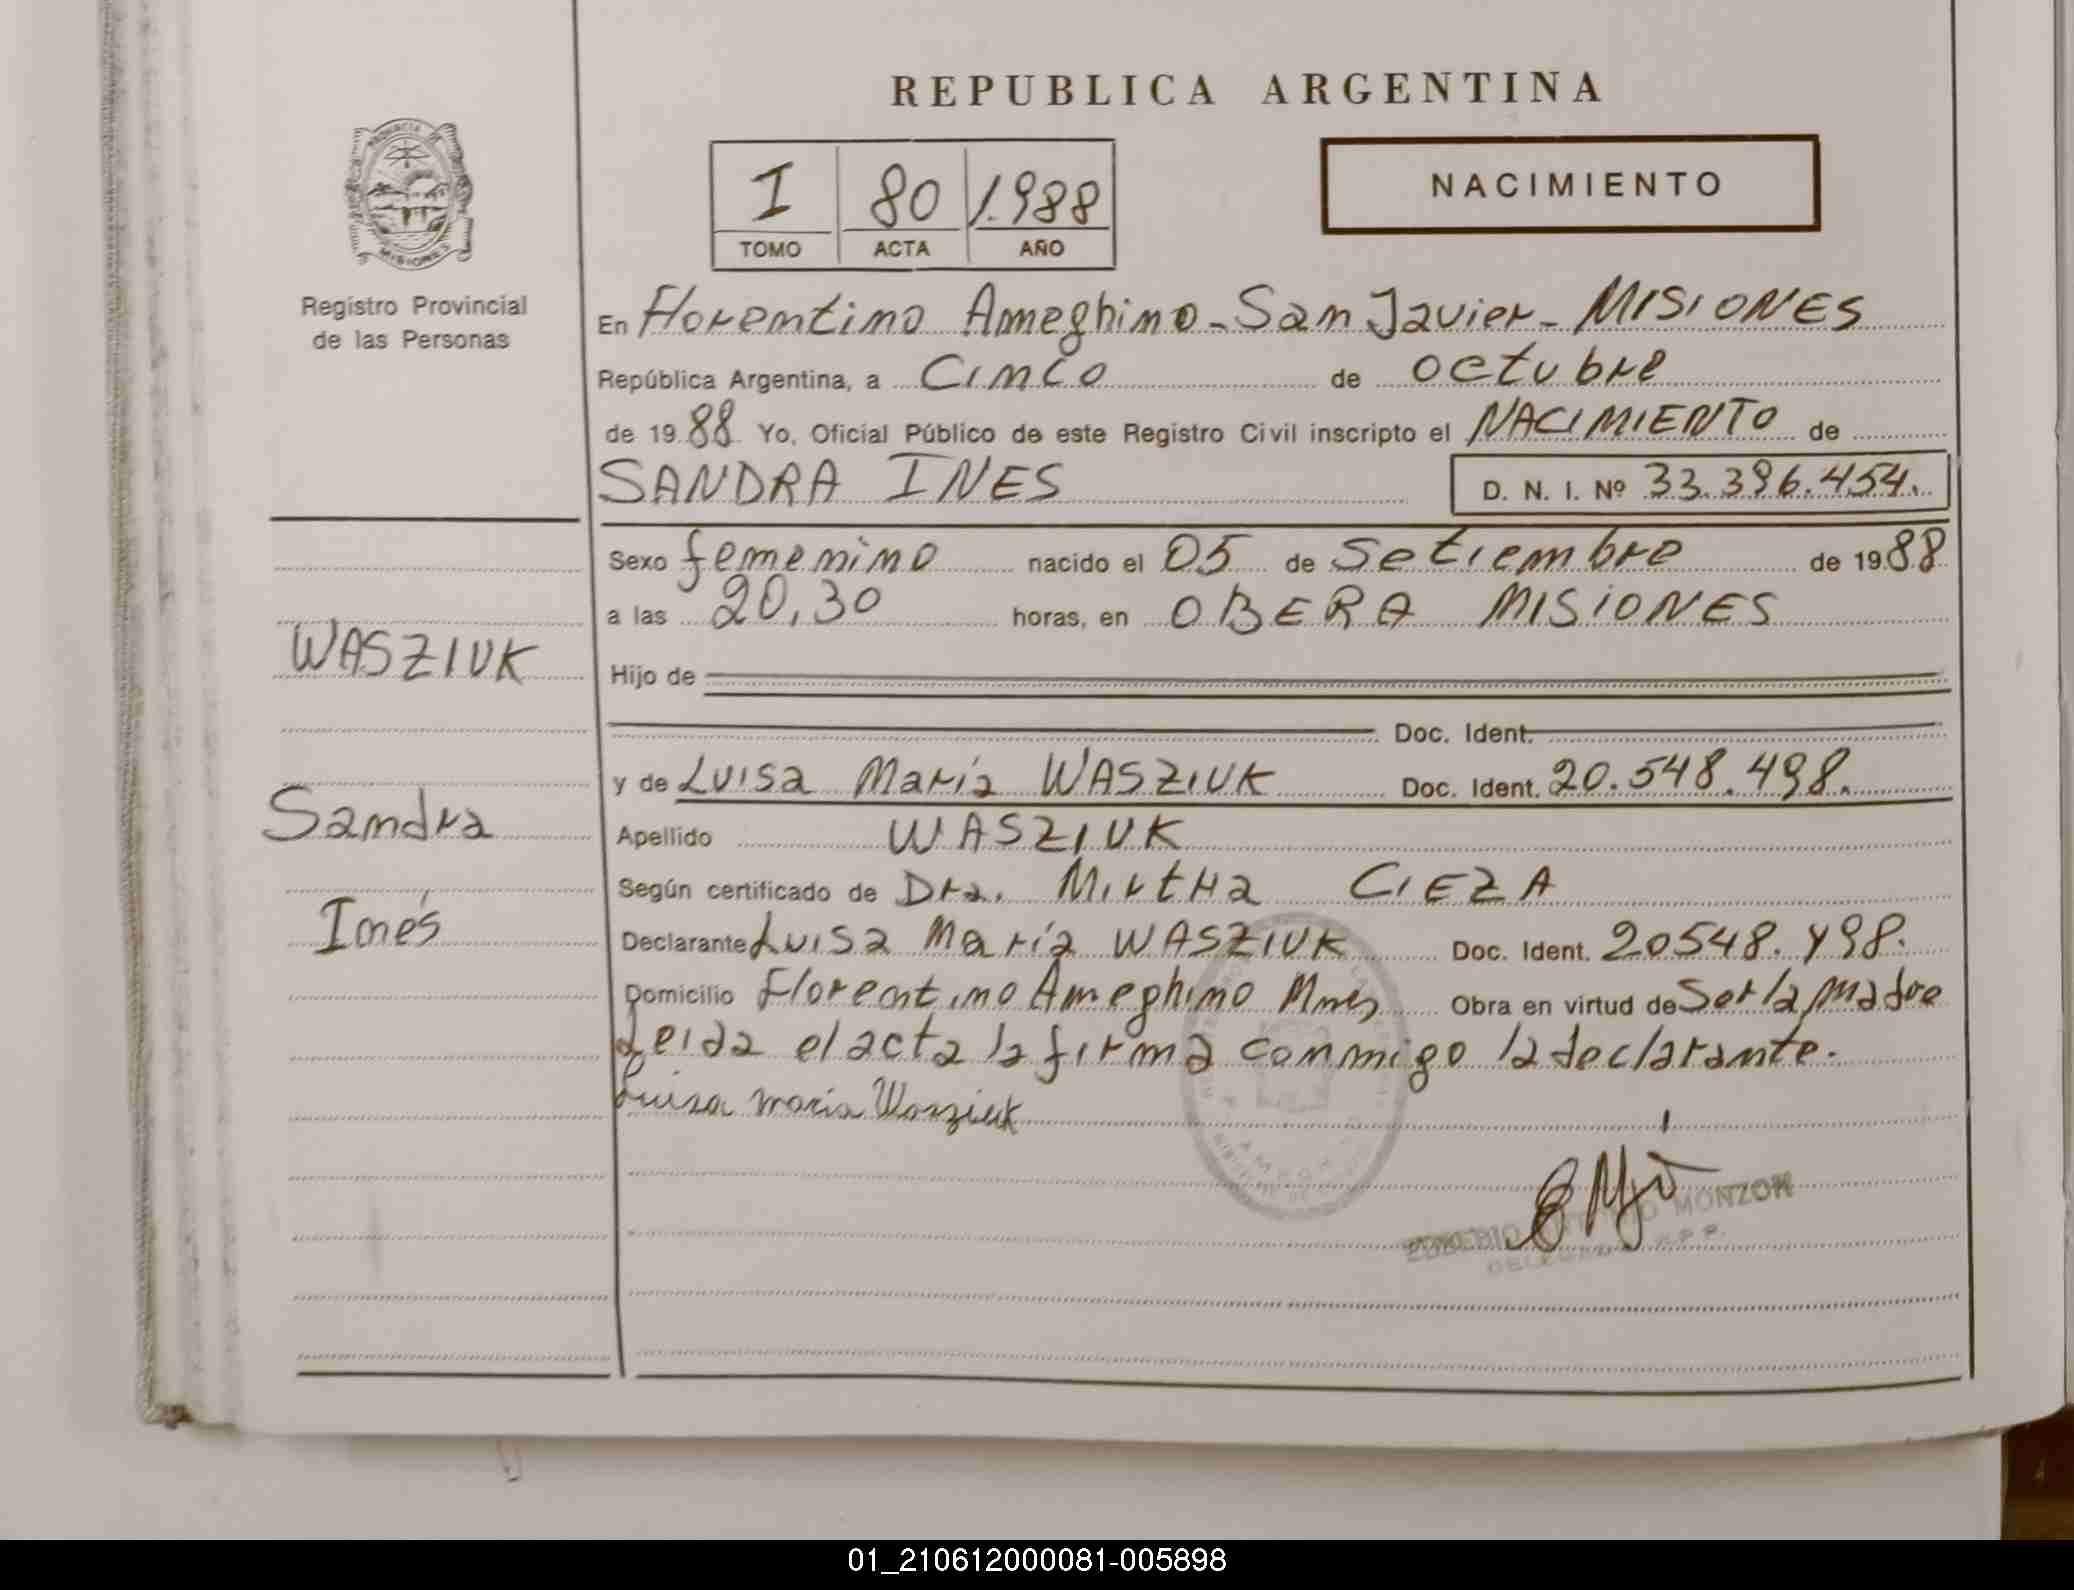 REPUBLICA ARGENTINA
PROVINCIA DE
MISIONES
Registro Provincial
de las Personas
I 80 1.988
TOMO ACTA AÑO
NACIMIENTO
En Florentino Ameghino - San Javier - MISIONES
República Argentina, a Cinco de octubre
de 19 88 Yo, Oficial Público de este Registro Civil inscripto el NACIMIENTO de
SANDRA INES D. N. I. Nº 33.396.454.
Sexo femenino nacido el 05 de Setiembre de 19 88
a las 20,30 horas, en OBERA MISIONES
WASZIUK
Hijo de
Doc. Ident.
y de Luisa María WASZIUK Doc. Ident. 20.548.498.
Sandra
Apellido WASZIUK
Según certificado de Dra. Mirtha CIEZA
Inés
Declarante Luisa María WASZIUK Doc. Ident. 20548.498.
Domicilio Florentino Ameghino Mnes Obra en virtud de Ser la madre
Leida el acta la firma conmigo la declarante.
Luisa maria Wasziuk
MONZON
01_210612000081-005898